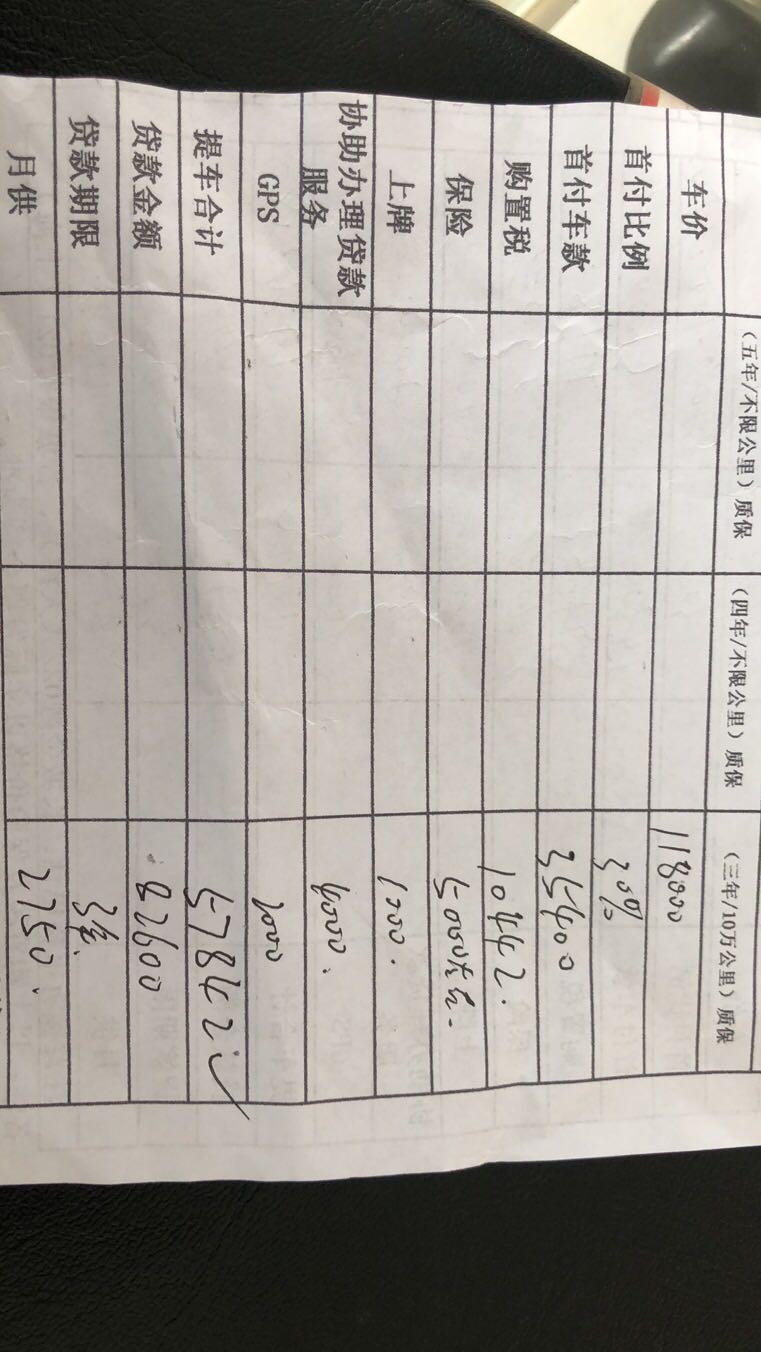 （五年/不限公里）质保 （四年/不限公里）质保 （三年/10万公里）质保
车价 118000
首付比例 30%
首付车款 35400
购置税 10442.
保险 5000左右
上牌 1000.
协助办理贷款
服务 4000.
GPS 2000
提车合计 57842
贷款金额 82600
贷款期限 3年
月供 2750.